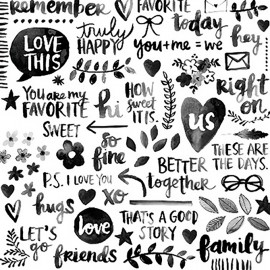 remember
FAVORITE
today
hey
LOVE
THIS
truly
HAPPY
you+me=we
You are my
FAVORITE
hi
HOW
sweet
IT IS.
right
on
us
SWEET
so
fine
THESE ARE
THE DAYS.
BETTER
together
P.S. I LOVE YOU
hugs
xo
LET'S
go
love
THAT'S A GOOD
STORY
friends
family